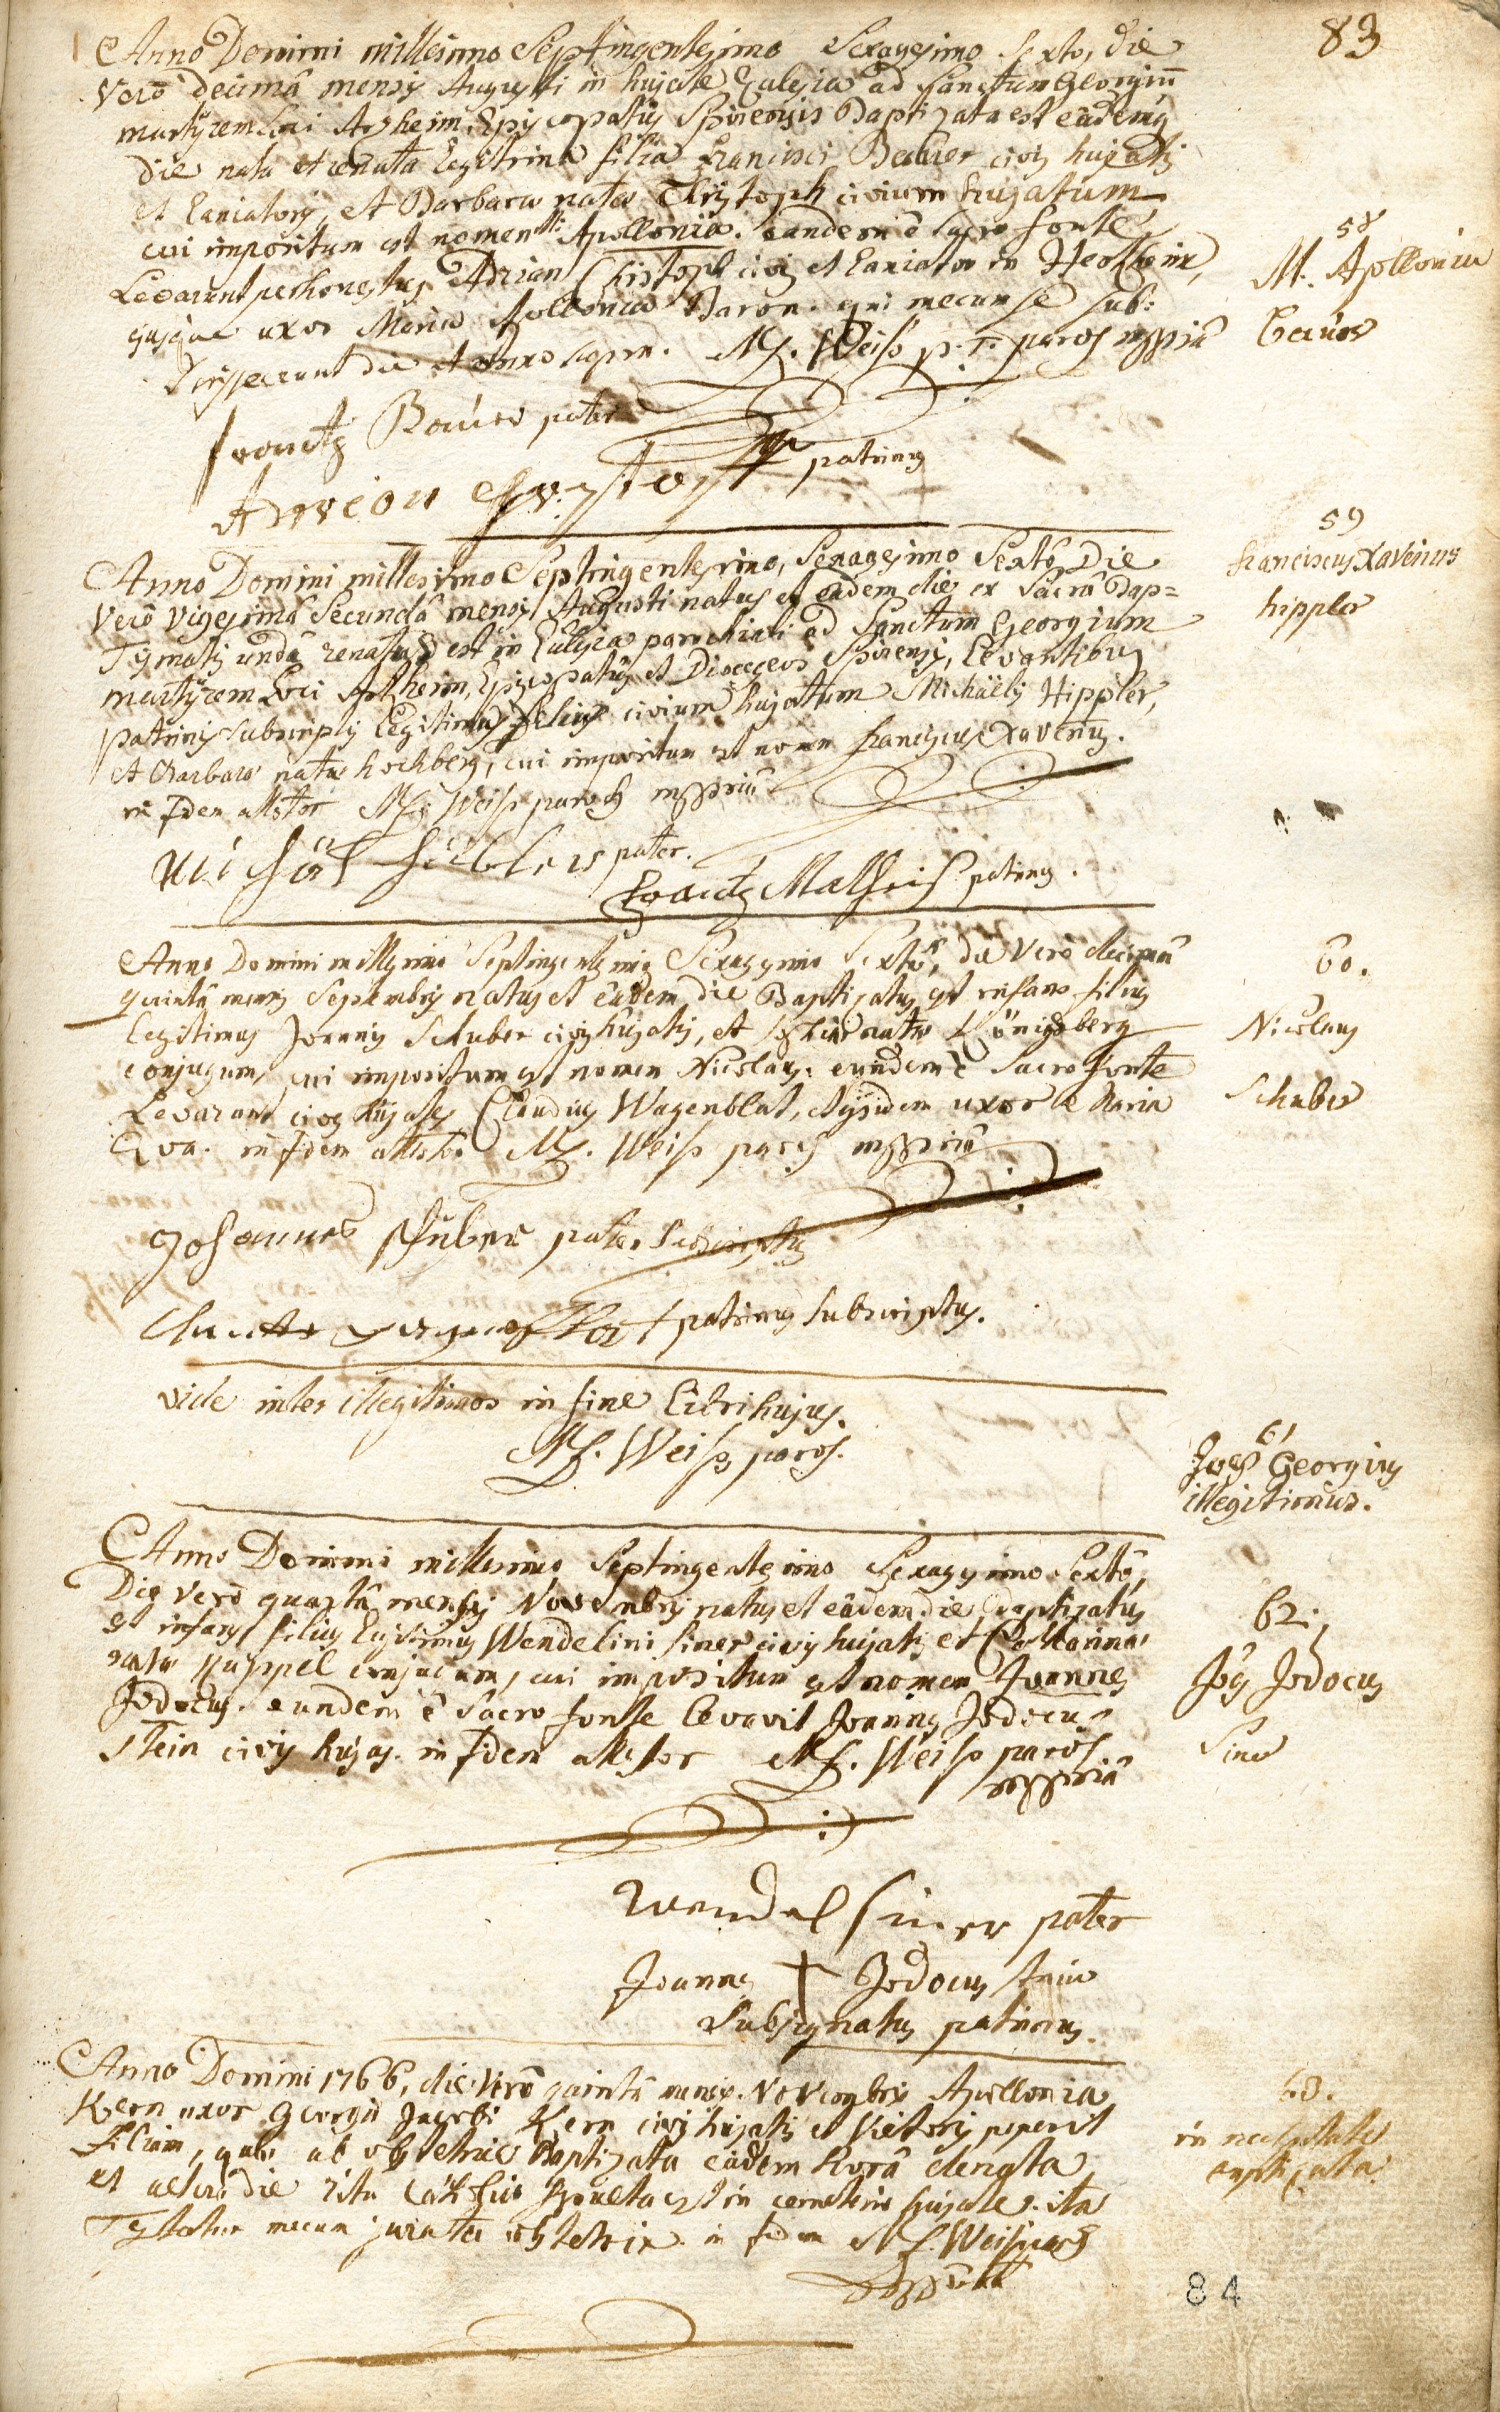 83
Anno Domini millesimo Septingentesimo Sexagesimo Sexto, die
Verò decimâ mensis Augusti in hujate Ecclesia ad Sanctum Georgium
martÿrem Loci Arzheim, Episcopatûs Spirensis Baptizata est eâdemq
die nata et renata legitima filia Francisci Bauer civis hujatis
et laniatoris, et Barbara nata Christoph civium hujatum
cui impositum est nomen M: Apollonia. eandem è Sacro fonte
Levarunt perhonestus Adrian Christoph civis et laniator in Herxheim,
ejusque uxor Maria Apollonia Baron. qui mecum se sub:
scripserunt die et anno supra. M. Weiß p. T. paroch mppriâ
58
M. Apollonia
Bauer
frantz Bauer pater
patrinus
Anno Domini millesimo Septingentesimo, Sexagesimo Sextô, Die
Verò Vigesimâ Secundâ mensis Augusti natus et eâdem die ex Sacrâ Bap=
Tismatis undâ renatus est in Ecclesia parochiali ad Sanctum Georgium
martÿrem Loci Arzheim, Episcopatûs et Dioeceseos Spirensis, Levantibus
patrinis subscriptis legitimus filius civium hujatum Michäelis Hippler,
et Barbara nata Hochberg, cui impositum est nomen Franciscus Xaverius.
in Fidem attestor M. Weiß paroch mppriâ
59
Franciscus Xaverius
hippler
pater.
Frantz Matheis patrinus.
Anno Domini millesimo Septingentesimo Sexagesimo Sextô, die Verò decimâ
quintâ mensis Septembris natus et eâdem die Baptizatus est infans filius
legitimus Joannis Schuber civis hujatis, et nata Königsberg
conjugum, cui impositum est nomen Nicolaus. eundem è Sacro fonte
Levarant cives hujates Claudius Wagenblat, ejusdem uxor Maria
Eva. in Fidem attestor M. Weiß paroch mppriâ
60.
Nicolaus
Schuber
Johannes pater subscriptus
patrinus subscriptus.
vide inter illegitimos in fine Libri hujus.
M. Weiß paroch.
61
Joes Georgius
illegitimus.
Anno Domini millesimo Septingentesimo Sexagesimo Sextô,
Die Verò quartâ mensis Novembris natus et eâdem die Baptizatus
est infans filius legitimus Wendelini Siner civis hujatis et Catharina
nata Kuppel conjugum, cui impositum est nomen Joannes
Jodocus. eundem è Sacro fonte levavit Joannes Jodocus
Stein civis hujas. in Fidem attestor M. Weiß paroch
mppriâ
62.
Joes Jodocus
Siner
Wendel Siner pater
Joannes + Jodocus Stein
Subsignatus patrinus.
Anno Domini 1766, die Verò quintâ mensis Novembris Apollonia
Kern uxor Georgii Jacobi Kern civis hujatis et peperit
Filiam, quae ab obstetrice Baptizata eâdem horâ denata
et alterâ die ritu sepulta est in cemeterio hujate. ita
Testatur mecum jurata obstetrix. in fidem M. Weiß paroch
mppriâ
63.
in necessitate
baptizata.
84